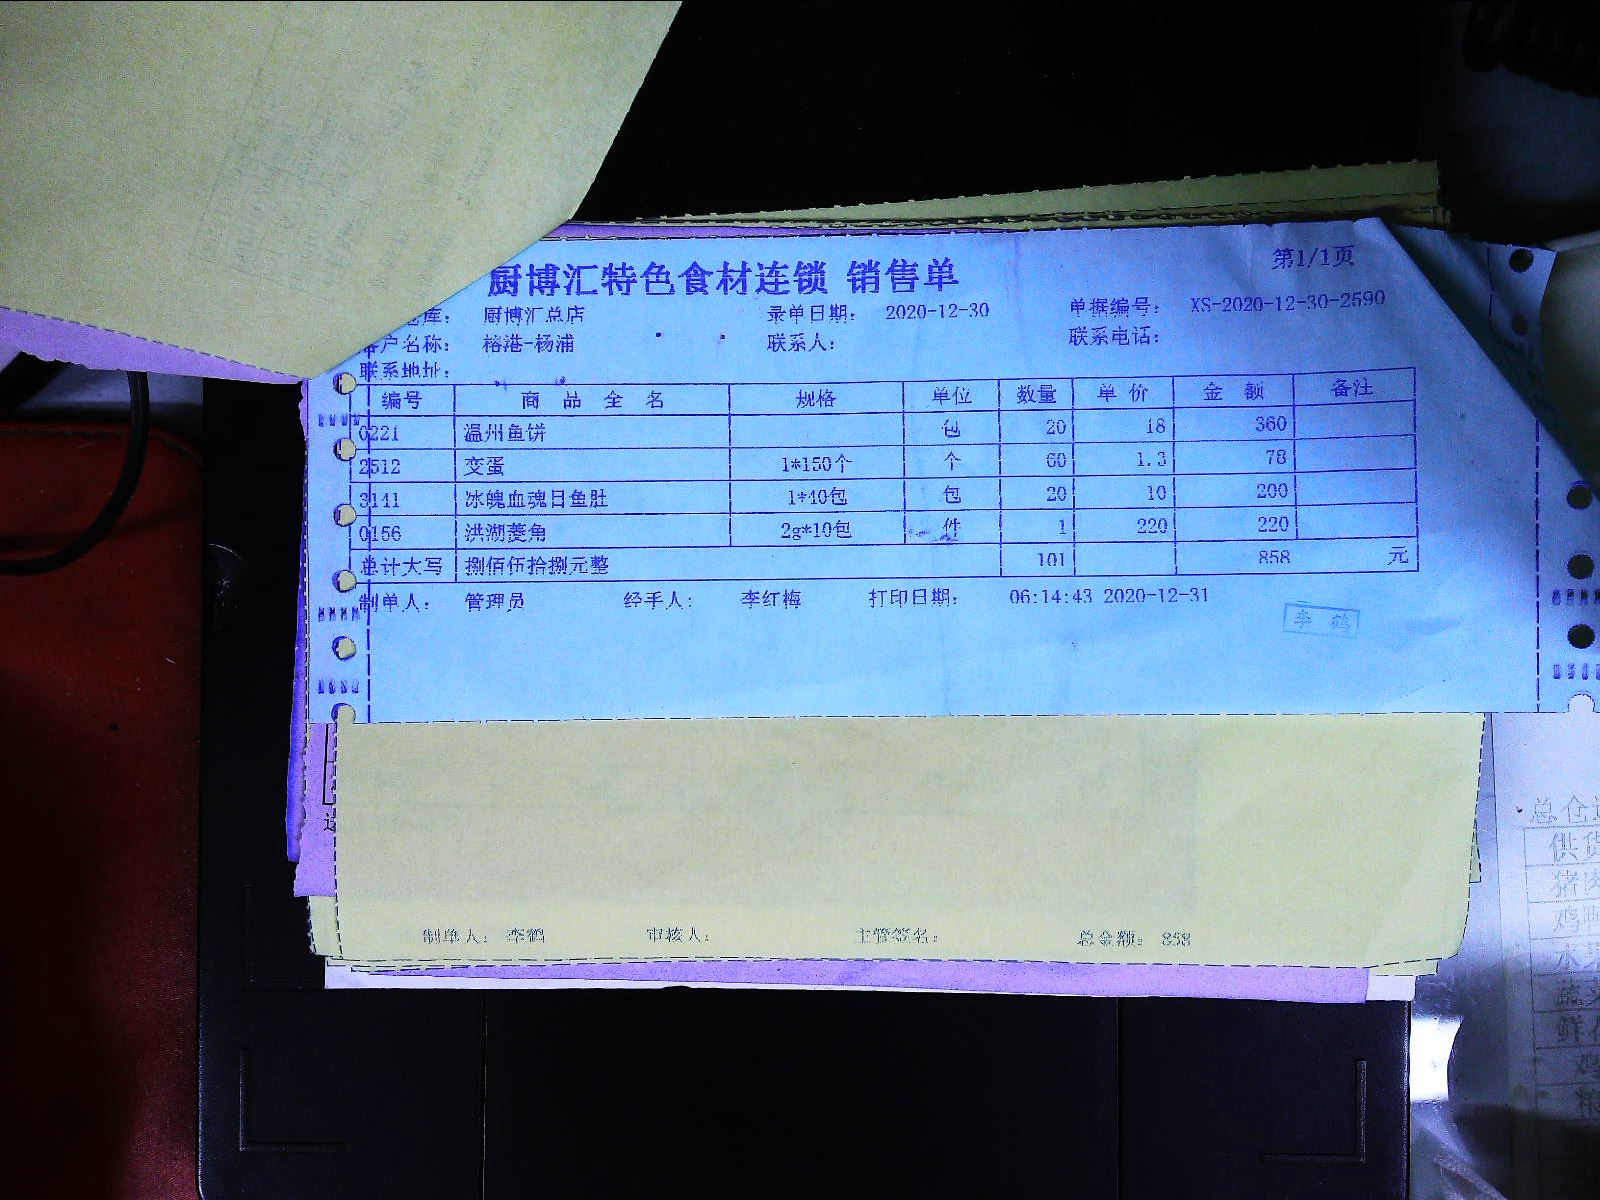 厨博汇特色食材连锁 销售单
第1/1页
仓库： 厨博汇总店 录单日期： 2020-12-30 单据编号： XS-2020-12-30-2590
客户名称： 榕港-杨浦 联系人： 联系电话：
联系地址：
编号 商品全名 规格 单位 数量 单价 金额 备注
0221 温州鱼饼 包 20 18 360
2512 变蛋 1*150个 个 60 1.3 78
3141 冰魄血魂日鱼肚 1*40包 包 20 10 200
0156 洪湖菱角 2g*10包 件 1 220 220
总计大写 捌佰伍拾捌元整 101 858 元
制单人： 管理员 经手人： 李红梅 打印日期： 06:14:43 2020-12-31
李鹤
制单人： 李鹤 审核人： 主管签名： 总金额： 858
总仓
供货
猪肉
鸡鸭
水果
蔬菜